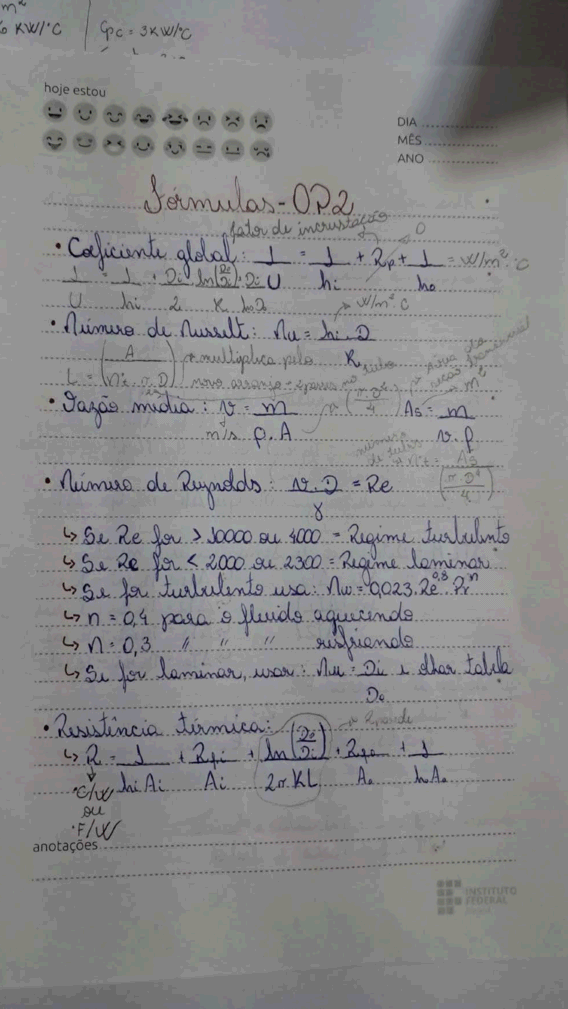 m²
KW/°C | Cpc = 3KW/°C
hoje estou
DIA
MÊS
ANO
Fórmulas - OP2
fator de incrustação
0
• Coeficiente global: 1/U = 1/hi + Rf + 1/ho = W/m² °C
1/U = 1/hi + Di/2 . ln(De/Di)/K . Di/ho
→ W/m² C
• Número de Nusselt: Nu = hi . D / K
L = (A / (nº . π . D)) multiplica pelo
novo arranjo
• Vazão média: v = m / ρ . A
m/s
(π D²/4)
As = m / v . ρ
m²
número de tubos
As / (π D²/4)
• Número de Reynolds: v . D / γ = Re
↳ Se Re for > 10000 ou 4000 = Regime turbulento
↳ Se Re for < 2000 ou 2300 = Regime laminar
↳ Se for turbulento usa: Nu = 0,023 . Re^0,8 . Pr^n
↳ n = 0,4 para o fluido aquecendo
↳ n = 0,3 " " " resfriando
↳ Se for laminar, usar: Nu = Di / Do e olhar tabela
• Resistência térmica:
→ Rparede
↳ R = 1 / hi Ai + Rfi / Ai + ln(Do/Di) / 2π KL + Rfo / Ao + 1 / ho Ao
°C/W
ou
°F/W
anotações
INSTITUTO
FEDERAL